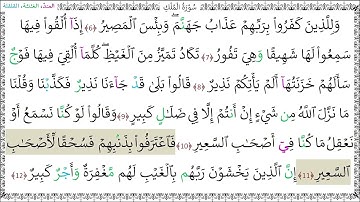 سُورَةُ المُلْكِ
المد، الغنة، القلقلة
وَلِلَّذِينَ كَفَرُواْ بِرَبِّهِمْ عَذَابُ جَهَنَّمَۖ وَبِئْسَ ٱلْمَصِيرُ ﴿6﴾ إِذَآ أُلْقُواْ فِيهَا
سَمِعُواْ لَهَا شَهِيقًا وَهِيَ تَفُورُ ﴿7﴾ تَكَادُ تَمَيَّزُ مِنَ ٱلْغَيْظِۖ كُلَّمَآ أُلْقِيَ فِيهَا فَوْجٌ
سَأَلَهُمْ خَزَنَتُهَآ أَلَمْ يَأْتِكُمْ نَذِيرٌ ﴿8﴾ قَالُواْ بَلَىٰ قَدْ جَآءَنَا نَذِيرٌ فَكَذَّبْنَا وَقُلْنَا
مَا نَزَّلَ ٱللَّهُ مِن شَيْءٍ إِنْ أَنتُمْ إِلَّا فِي ضَلَٰلٍ كَبِيرٍ ﴿9﴾ وَقَالُواْ لَوْ كُنَّا نَسْمَعُ أَوْ
نَعْقِلُ مَا كُنَّا فِيٓ أَصْحَٰبِ ٱلسَّعِيرِ ﴿10﴾ فَٱعْتَرَفُواْ بِذَنۢبِهِمْ فَسُحْقًا لِّأَصْحَٰبِ
ٱلسَّعِيرِ ﴿11﴾ إِنَّ ٱلَّذِينَ يَخْشَوْنَ رَبَّهُم بِٱلْغَيْبِ لَهُم مَّغْفِرَةٌ وَأَجْرٌ كَبِيرٌ ﴿12﴾